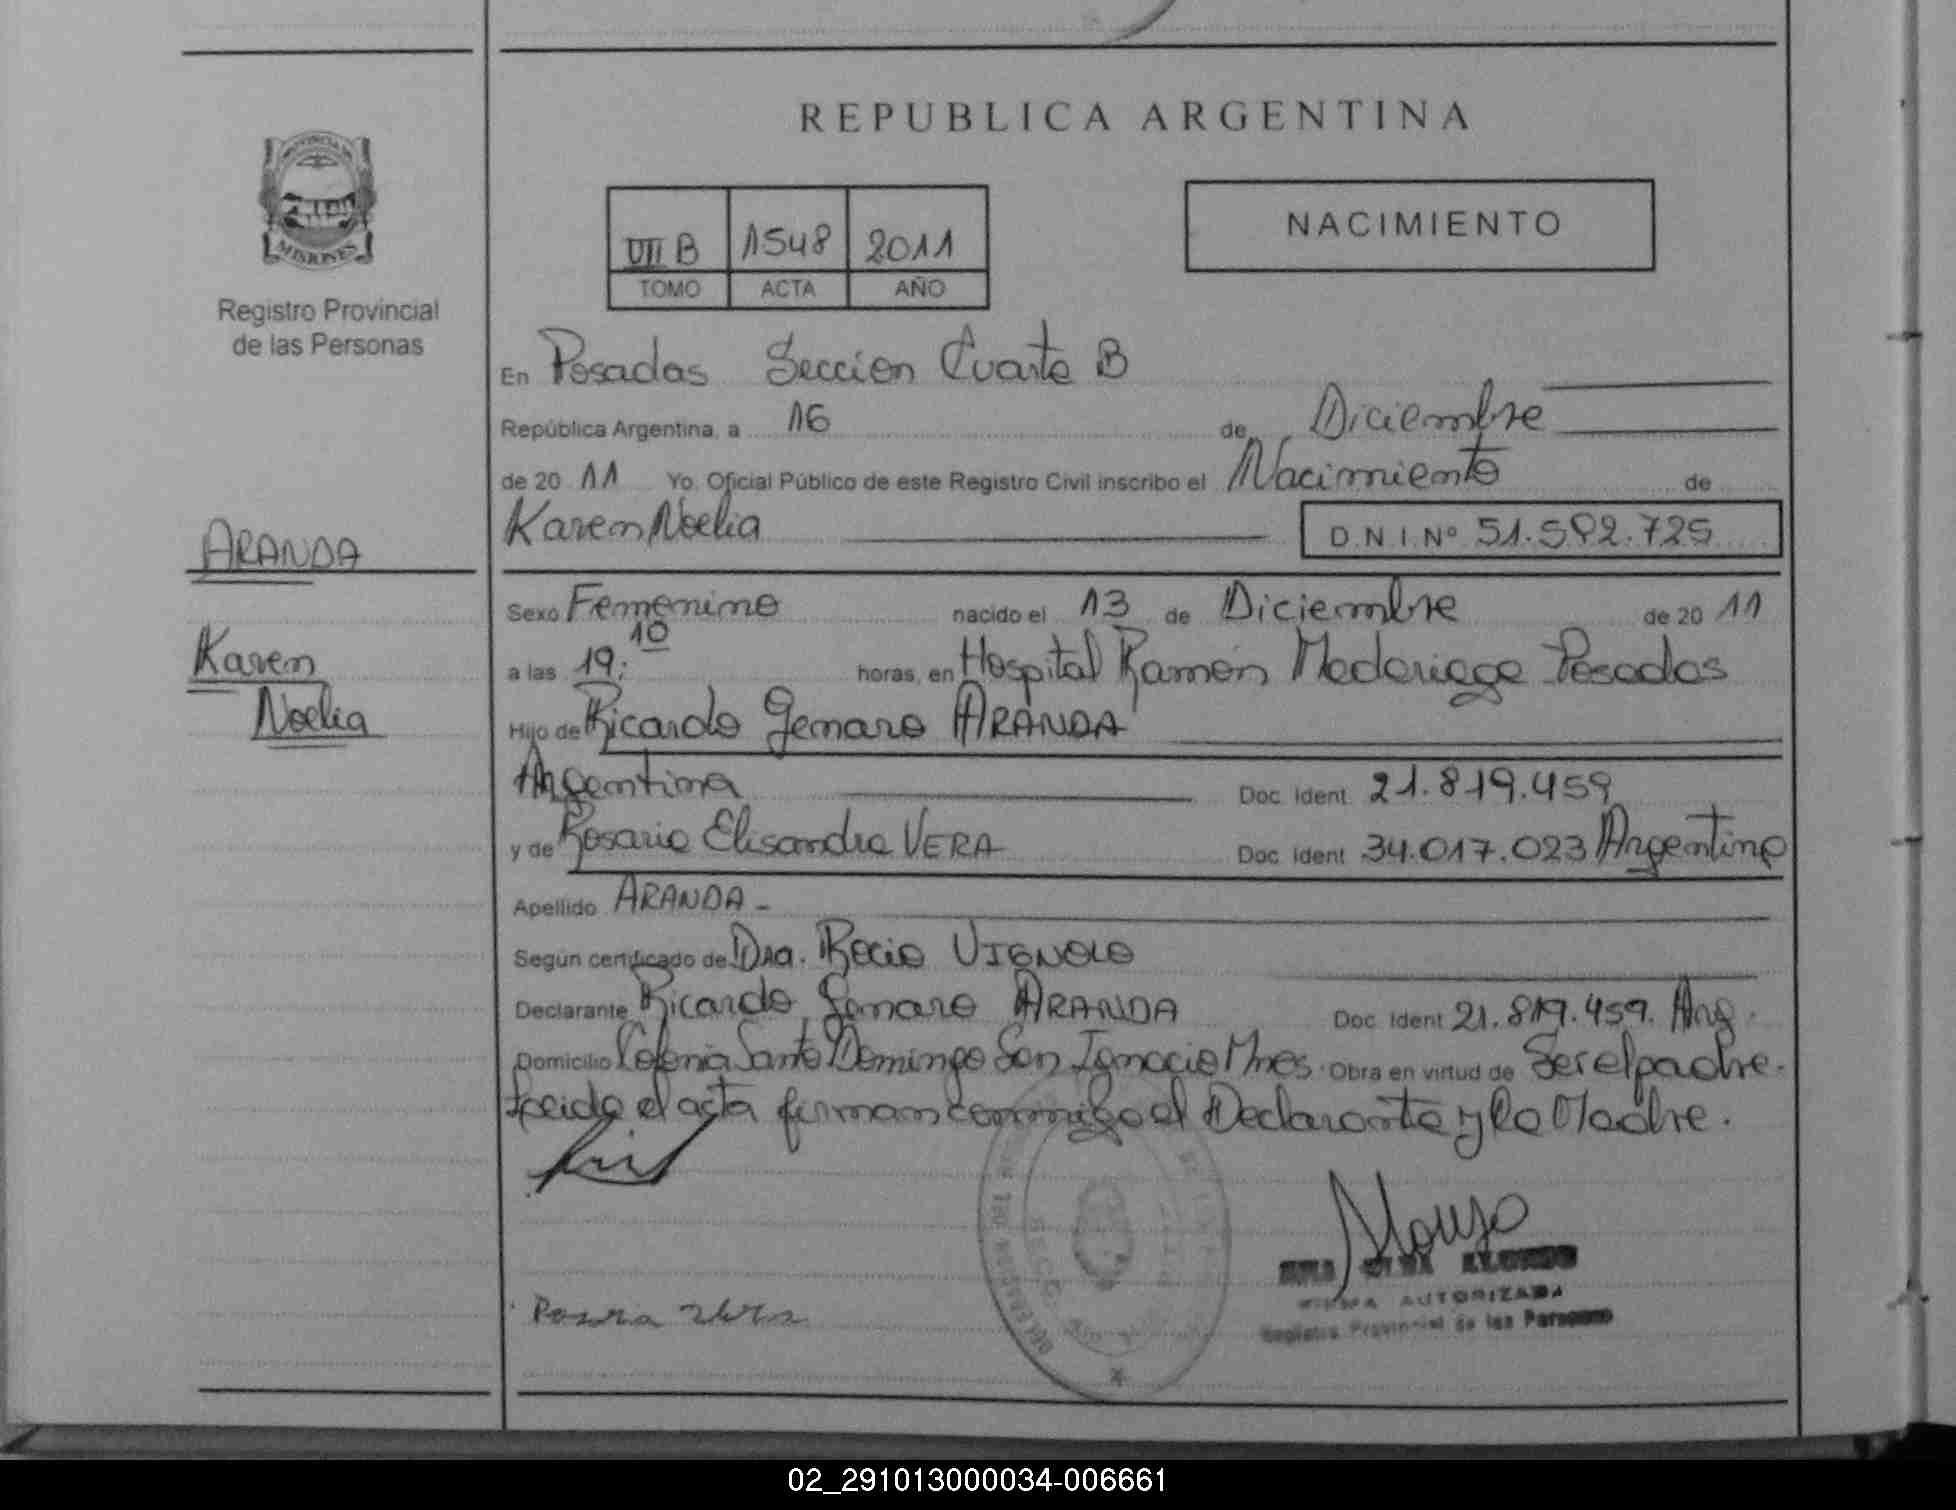 REPUBLICA ARGENTINA
PROVINCIA DE
MISIONES
Registro Provincial
de las Personas
VII B 1548 2011
TOMO ACTA AÑO
NACIMIENTO
En Posadas Seccion Cuarta B
República Argentina, a 16 de Diciembre
de 20 11 Yo, Oficial Público de este Registro Civil inscribo el Nacimiento de
Karen Noelia D.N.I. Nº 51.592.725
ARANDA
Karen
Noelia
Sexo Femenino nacido el 13 de Diciembre de 20 11
a las 19:10 horas, en Hospital Ramón Madariaga Posadas
Hijo de Ricardo Genaro ARANDA
Argentina Doc. Ident. 21.819.459
y de Rosario Elisandra VERA Doc. Ident. 34.017.023 Argentina
Apellido ARANDA -
Según certificado de Dra. Rocio VIGNOLO
Declarante Ricardo Genaro ARANDA Doc. Ident. 21.819.459. Arg.
Domicilio Colonia Santo Domingo San Ignacio Mnes. Obra en virtud de Ser el padre.
Leida el acta firman conmigo el Declarante y la Madre.
ALONSO
FIRMA AUTORIZADA
Registro Provincial de las Personas
02_291013000034-006661